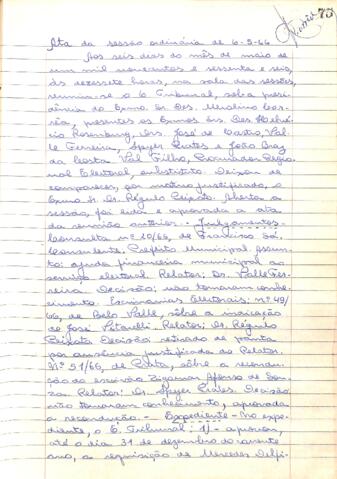 75
Ata da sessão ordinária de 6-5-66
Aos seis dias do mês de maio de
um mil novecentos e sessenta e seis,
às dezessete horas, na sala das sessões,
reuniu-se o E. Tribunal, sob a presi-
dência do Exmo. Sr. Des. Merolino Cor-
rêa, presentes os Exmos. Srs. Des.
Rosenburg, Drs. José de Castro, Val-
le Ferreira, e João Braz
da Costa Val Filho, Procurador Regio-
nal Eleitoral, substituto. Deixou de
comparecer, por motivo justificado, o
Exmo. Sr. Dr. Régulo Peixoto. Aberta a
sessão, foi lida e aprovada a ata
da reunião anterior. - Julgamentos:
Consulta nº 10/66, de
Consulente: Prefeito Municipal. Assun-
to: ajuda financeira municipal ao
serviço eleitoral. Relator: Dr. Valle Fer-
reira. Decisão: não tomaram conhe-
cimento. Escrivanias Eleitorais: nº 49/
66, de Belo Valle, sôbre a indicação
de José. Relator: Dr. Régulo
Peixoto. Decisão: retirado de pauta
por ausência justificada do Relator.
Nº 51/66, de, sôbre a recondu-
ção do escrivão Afonso de Sou-
za. Relator: Dr. Decisão:
não tomaram conhecimento, aprovada
a recondução. - Expediente - No expe-
diente, o E. Tribunal: 1) - aprovou,
até o dia 31 de dezembro do corrente
ano, a requisição de Mercedes Delfi-